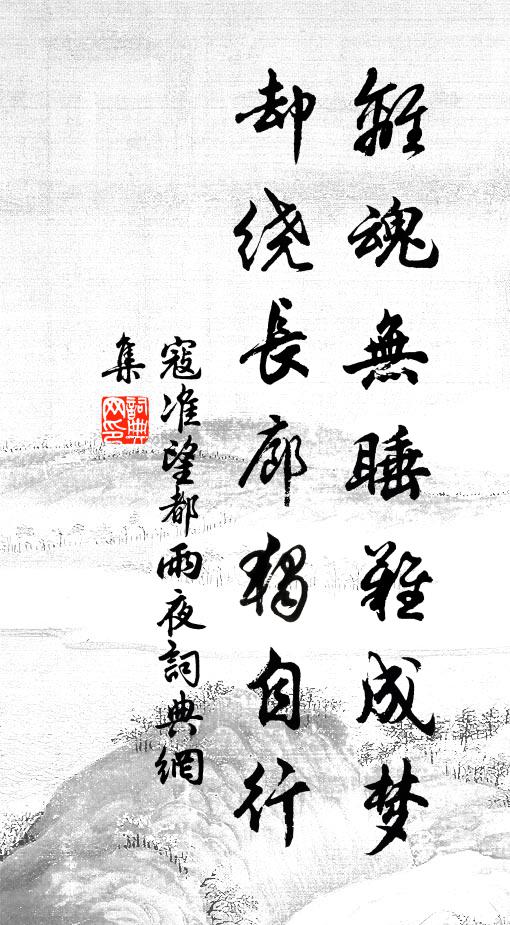 離魂無睡難成梦
却绕長廊獨自行
寇准望都雨夜詞典網
集
詞典
网印